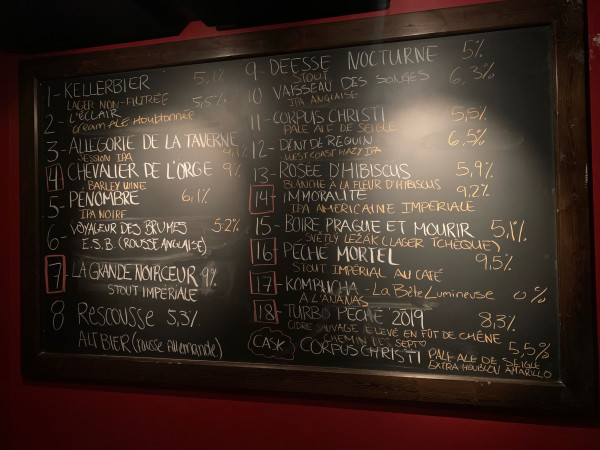 1- KELLERBIER 5,1%
LAGER NON-FILTRÉE
2- L'ÉCLAIR 5,5%
Cream ALE Houblonnée
3- ALLÉGORIE DE LA TAVERNE
SESSION IPA
4 CHEVALIER DE L'ORGE 9%
BARLEY WINE
5- PÉNOMBRE 6,1%
IPA NOIRE
6- VOYALEUR DES BRUMES 5.2%
E.S.B. (ROUSSE ANGLAISE)
7- LA GRANDE NOIRCEUR 9%
STOUT IMPÉRIALE
8 RESCOUSSE 5,3%
ALTBIER (rousse allemande)
9- DÉESSE NOCTURNE 5%
STOUT
10 VAISSEAU DES SONGES 6,3%
IPA ANGLAISE
11- CORPUS CHRISTI 5,5%
PALE ALE DE SEIGLE
12- DENT DE REQUIN 6.5%
WEST COAST HAZY IPA
13- ROSÉE D'HIBISCUS 5,9%
BLANCHE À LA FLEUR D'HIBISCUS
14- IMMORALITÉ 9,2%
IPA AMÉRICAINE IMPÉRIALE
15- BOIRE PRAGUE ET MOURIR 5,1%
SVĚTLÝ LEŽÁK (LAGER TCHÈQUE)
16- PÉCHÉ MORTEL 9,5%
STOUT IMPÉRIAL AU CAFÉ
17- KOMBUCHA - La Bête Lumineuse 0%
À L'ANANAS
18- TURBO PÉCHÉ 2019 8,3%
CIDRE SAUVAGE ÉLEVÉ EN FÛT DE CHÊNE
CHEMIN LES SEPT
CASK CORPUS CHRISTI PALE ALE DE SEIGLE 5,5%
EXTRA HOUBLON AMARILLO